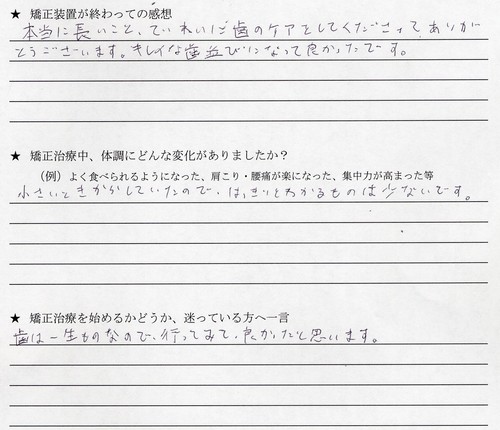 ★ 矯正装置が終わっての感想
本当に長いこと、ていねいに歯のケアをしてくださって、ありが
とうございます。キレイな歯並びになって良かったです。
★ 矯正治療中、体調にどんな変化がありましたか？
（例）よく食べられるようになった、肩こり・腰痛が楽になった、集中力が高まった等
小さいときからしていたので、はっきりとわかるものは少ないです。
★ 矯正治療を始めるかどうか、迷っている方へ一言
歯は一生ものなので、行ってみて、良かったと思います。